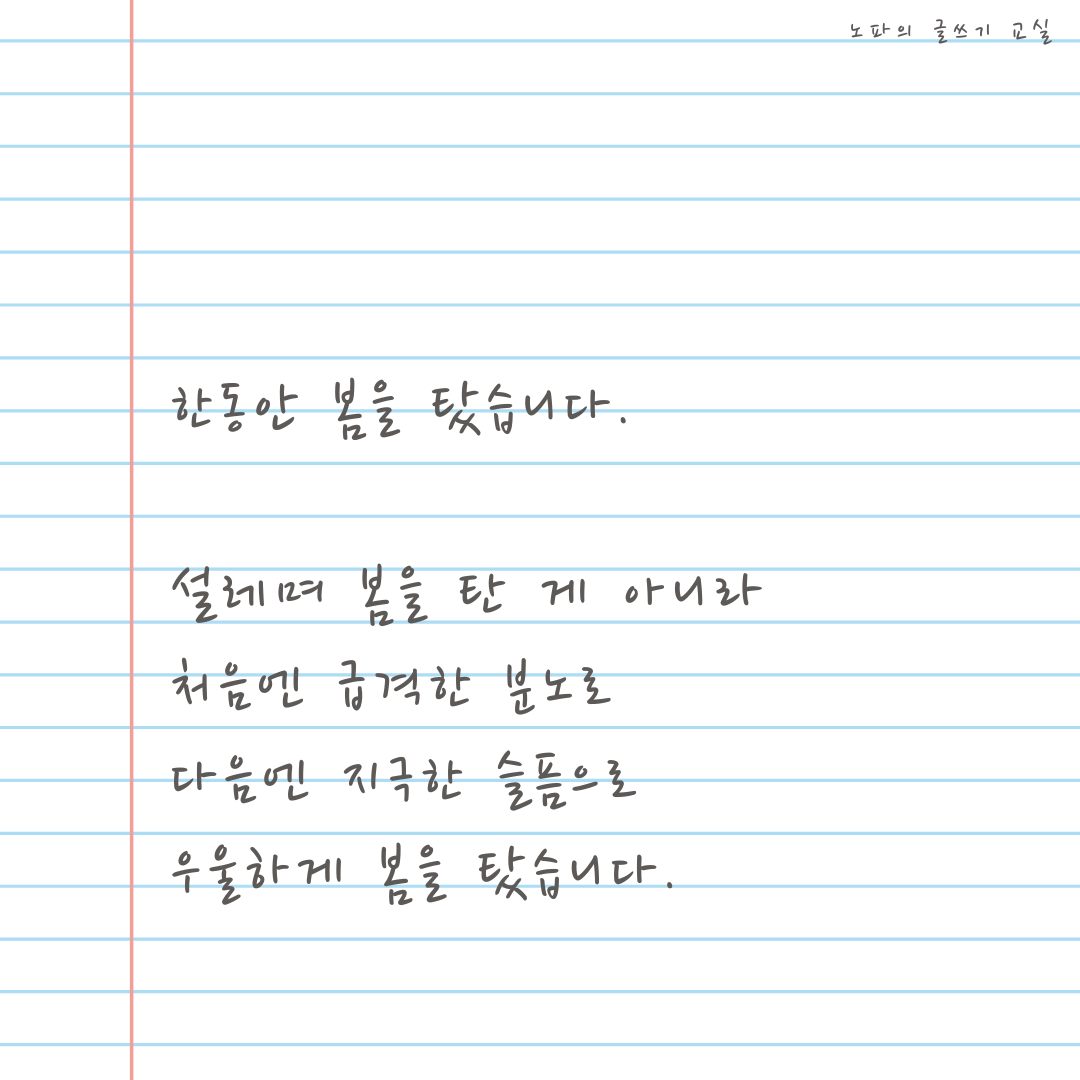 노파의 글쓰기 교실
한동안 봄을 탔습니다.
설레며 봄을 탄 게 아니라
처음엔 급격한 분노로
다음엔 지극한 슬픔으로
우울하게 봄을 탔습니다.